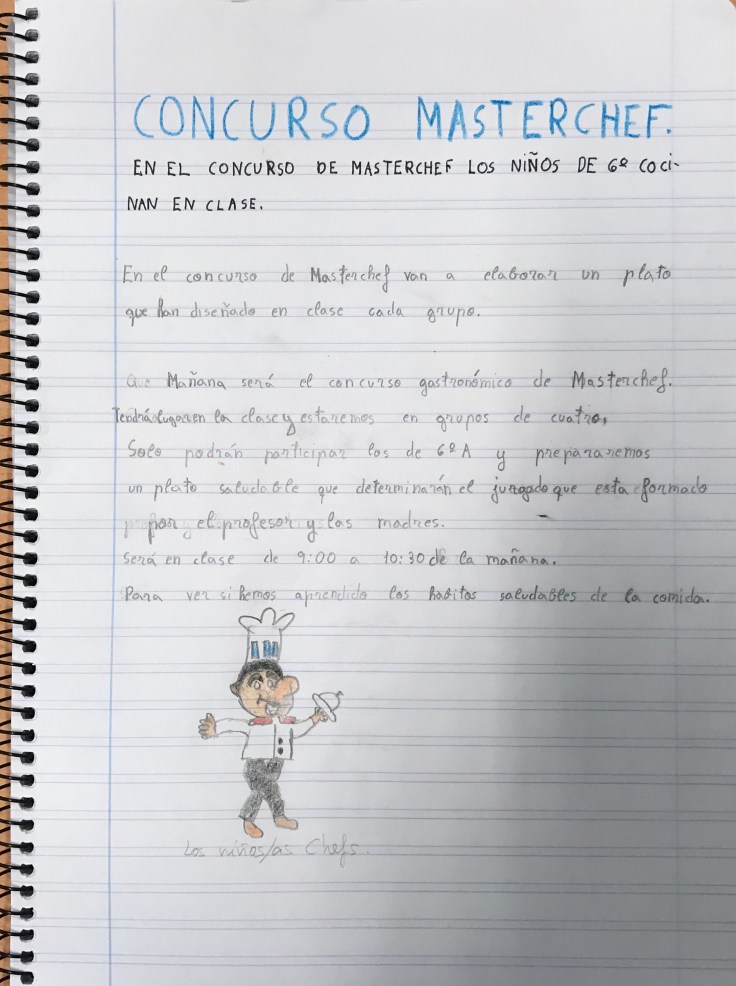 CONCURSO MASTERCHEF.
EN EL CONCURSO DE MASTERCHEF LOS NIÑOS DE 6º COCI-
NAN EN CLASE.
En el concurso de Masterchef van a elaborar un plato
que han diseñado en clase cada grupo.
Que Mañana será el concurso gastronómico de Masterchef.
Tendrá lugar en la clase y estaremos en grupos de cuatro,
Solo podrán participar los de 6º A y prepararemos
un plato saludable que determinarán el jurgado que esta formado
por el profesor y las madres.
Será en clase de 9:00 a 10:30 de la mañana.
Para ver si hemos aprendido los habitos saludables de la comida.
Los niños/as Chefs.